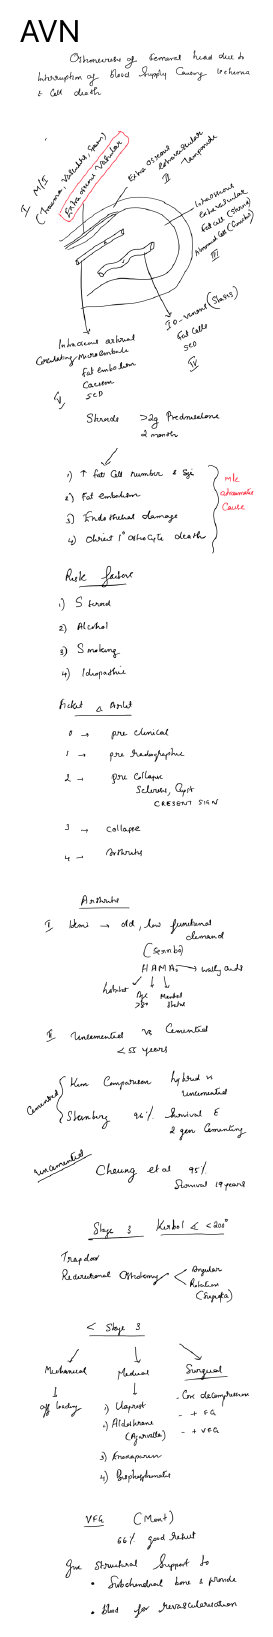 AVN
Osteonecrosis of femoral head due to
Interruption of blood supply causing ischemia
& cell death
I M/I
(Trauma, Vasculitis, Spasm)
Extra osseous Vascular
Extra osseous
extravascular
Tamponade
II
Intraosseous
extravascular
Fat cell (Steroid)
Abnormal cell (Gaucher)
III
IO-venous (Stasis)
Fat cells
SCD
IV
Intraosseous arterial
Circulating Microemboli
Fat embolism
Caisson
SCD
V
Steroids >2g Prednisolone
2 month
1) ↑ fat cell number & size
2) Fat embolism
3) Endothelial damage
4) direct 1° osteocyte death
m/c
atraumatic
cause
Risk factors
1) Steroid
2) Alcohol
3) Smoking
4) Idiopathic
Ficat & Arlet
0 → pre clinical
1 → pre radiographic
2 → pre collapse
Sclerosis, Cyst
CRESENT SIGN
3 → collapse
4 → Arthritis
Arthritis
I Hemi → old, low functional
demand
HAMA → walking aids
Age
>80
Mental
State
II Uncemented vs Cemented
<55 years
Cemented
Kim Comparison hybrid vs
uncemented
Steinberg 96% Survival E
2 gen Cementing
uncemented
Cheung et al 95%
Survival 19 years
Stage 3 Kerbol ∠ <200°
Trapdoor
Redirectional Osteotomy
Angular
Rotation
(Sugioka)
< Stage 3
Mechanical
Medical
Surgical
off loading
1) Iloprost
2)
(Agarwalla)
3) Enoxaparin
4) Bisphosphonates
- Core decompression
- + BG
- + VFG
VFG (Mont)
66% good result
give Structural Support to
• Subchondral bone & provide
• blood for revascularisation